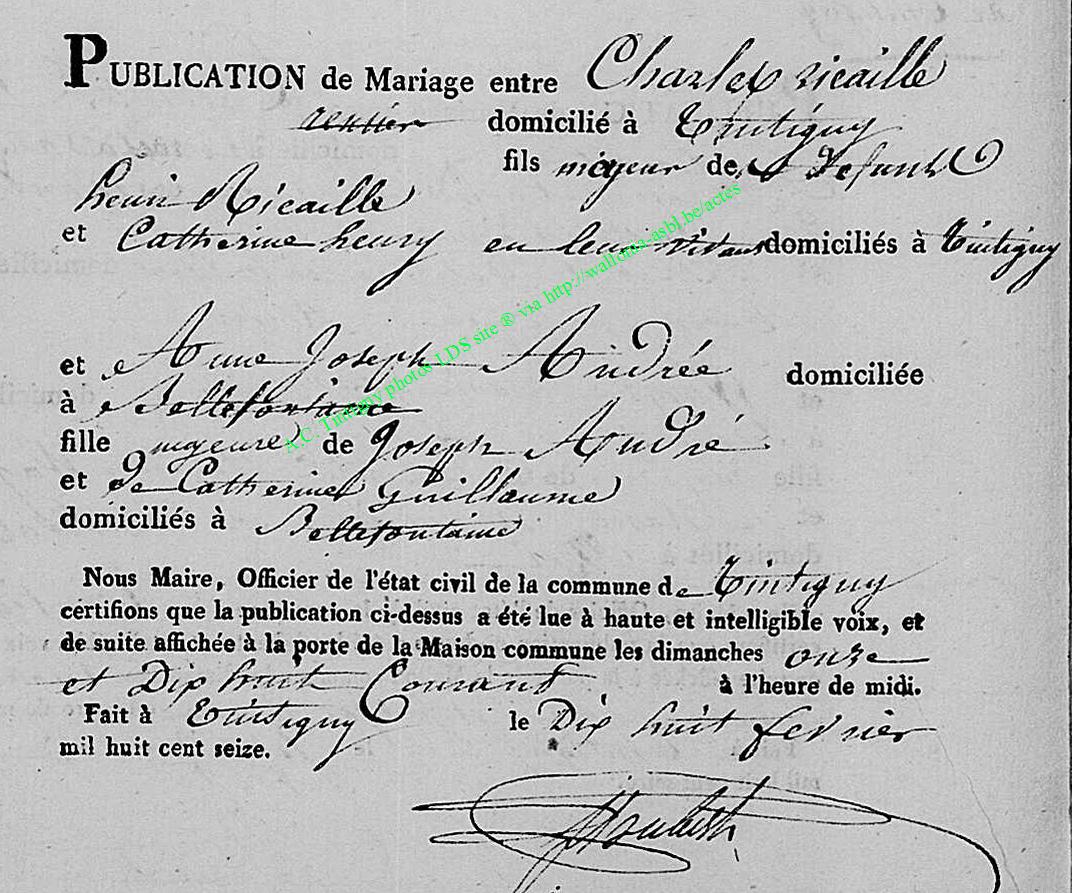 PUBLICATION de Mariage entre Charles ricaille
rentier domicilié à Tintigny
fils majeur de Defunts
henri Ricaille
et Catherine henry en leur vivant domiciliés à Tintigny
et Anne Joseph Andrée domiciliée
à Bellefontaine
fille majeure de Joseph André
et de Catherine Guillaume
domiciliés à Bellefontaine
Nous Maire, Officier de l'état civil de la commune de Tintigny
certifions que la publication ci-dessus a été lue à haute et intelligible voix, et
de suite affichée à la porte de la Maison commune les dimanches onze
et Dix huit Courant à l'heure de midi.
Fait à Tintigny le Dix huit fevrier
mil huit cent seize.
A.C. Tintigny photos LDS site ® via http://wallonia-asbl.be/actes